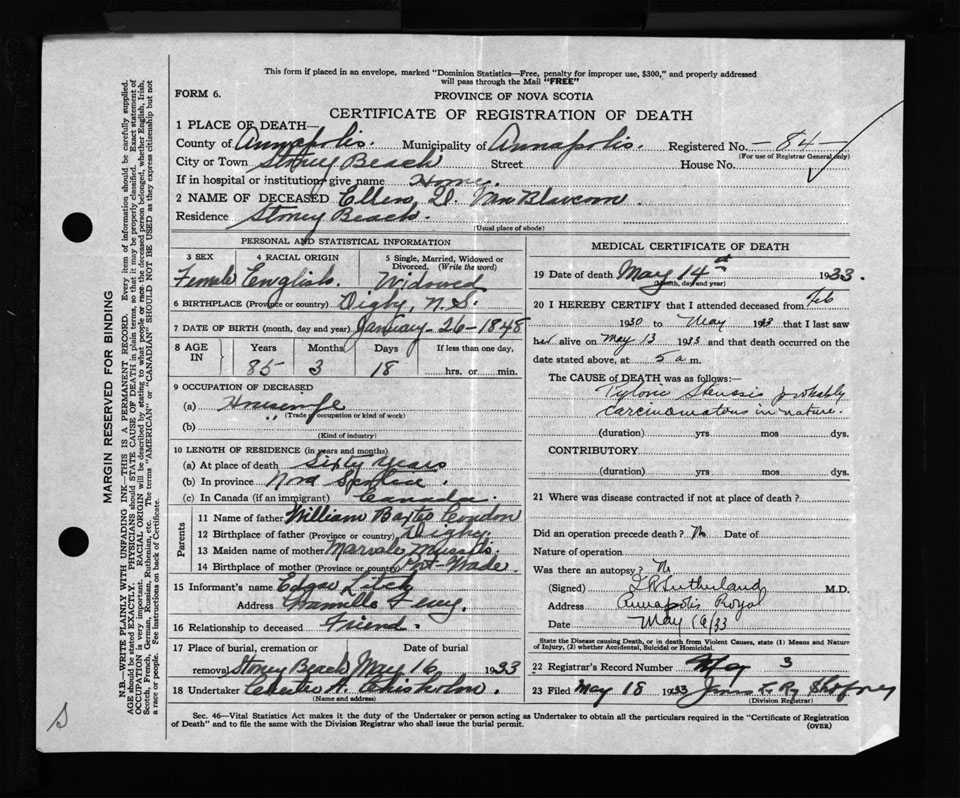 This form if placed in an envelope, marked "Dominion Statistics—Free, penalty for improper use, $300," and properly addressed
will pass through the Mail "FREE"
FORM 6. PROVINCE OF NOVA SCOTIA
CERTIFICATE OF REGISTRATION OF DEATH
1 PLACE OF DEATH—
County of Annapolis. Municipality of Annapolis. Registered No. —84—
(For use of Registrar General only)
City or Town Stoney Beach Street House No.
If in hospital or institution, give name Home.
2 NAME OF DECEASED Ellen Van Blarcom
Residence Stoney Beach.
(Usual place of abode)
PERSONAL AND STATISTICAL INFORMATION
3 SEX 4 RACIAL ORIGIN 5 Single, Married, Widowed or Divorced. (Write the word)
Female English. Widowed
6 BIRTHPLACE (Province or country) Digby, N.S.
7 DATE OF BIRTH (month, day and year) January-26-1848
8 AGE IN Years Months Days If less than one day,
85 3 18 hrs. or min.
9 OCCUPATION OF DECEASED
(a) Housewife
(Trade, occupation or kind of work)
(b)
(Kind of industry)
10 LENGTH OF RESIDENCE (in years and months)
(a) At place of death Sixty Years
(b) In province Nova Scotia
(c) In Canada (if an immigrant) Canada.
Parents
11 Name of father William Baxter Condon
12 Birthplace of father (Province or country) Digby.
13 Maiden name of mother
14 Birthplace of mother (Province or country) Port-Wade.
15 Informant's name Edgar
Address Granville Ferry.
16 Relationship to deceased Friend.
17 Place of burial, cremation or Date of burial
removal Stoney Beach May 16 1933
18 Undertaker Chisholm.
(Name and address)
MEDICAL CERTIFICATE OF DEATH
19 Date of death May 14th 1933.
(Month, day and year)
20 I HEREBY CERTIFY that I attended deceased from Feb
1930 to May 1933 that I last saw
her alive on May 13 1933 and that death occurred on the
date stated above, at 5 a m.
The CAUSE of DEATH was as follows:—
Pyloric Stenosis probably
carcinomatous in nature.
(duration) yrs mos dys.
CONTRIBUTORY
(duration) yrs mos dys.
21 Where was disease contracted if not at place of death?
Did an operation precede death? No Date of
Nature of operation
Was there an autopsy? No
(Signed) Sutherland M.D.
Address Annapolis Royal
Date May 16/33
State the Disease causing Death, or in death from Violent Causes, state (1) Means and Nature
of Injury, (2) whether Accidental, Suicidal or Homicidal.
22 Registrar's Record Number 3
23 Filed May 18 1933
(Division Registrar)
Sec. 46—Vital Statistics Act makes it the duty of the Undertaker or person acting as Undertaker to obtain all the particulars required in the "Certificate of Registration
of Death" and to file the same with the Division Registrar who shall issue the burial permit. (OVER)
MARGIN RESERVED FOR BINDING
N.B.—WRITE PLAINLY WITH UNFADING INK—THIS IS A PERMANENT RECORD. Every item of information should be carefully supplied.
AGE should be stated EXACTLY. PHYSICIANS should STATE CAUSE OF DEATH in plain terms, so that it may be properly classified. Exact statement of
OCCUPATION is very important. RACIAL ORIGIN will be described by stating to what people or race the deceased person belonged, whether English, Irish,
Scotch, French, German, Russian, Ruthenian, etc. The terms "AMERICAN" or "CANADIAN" SHOULD NOT BE USED as they express citizenship but not
a race or people. See instructions on back of Certificate.